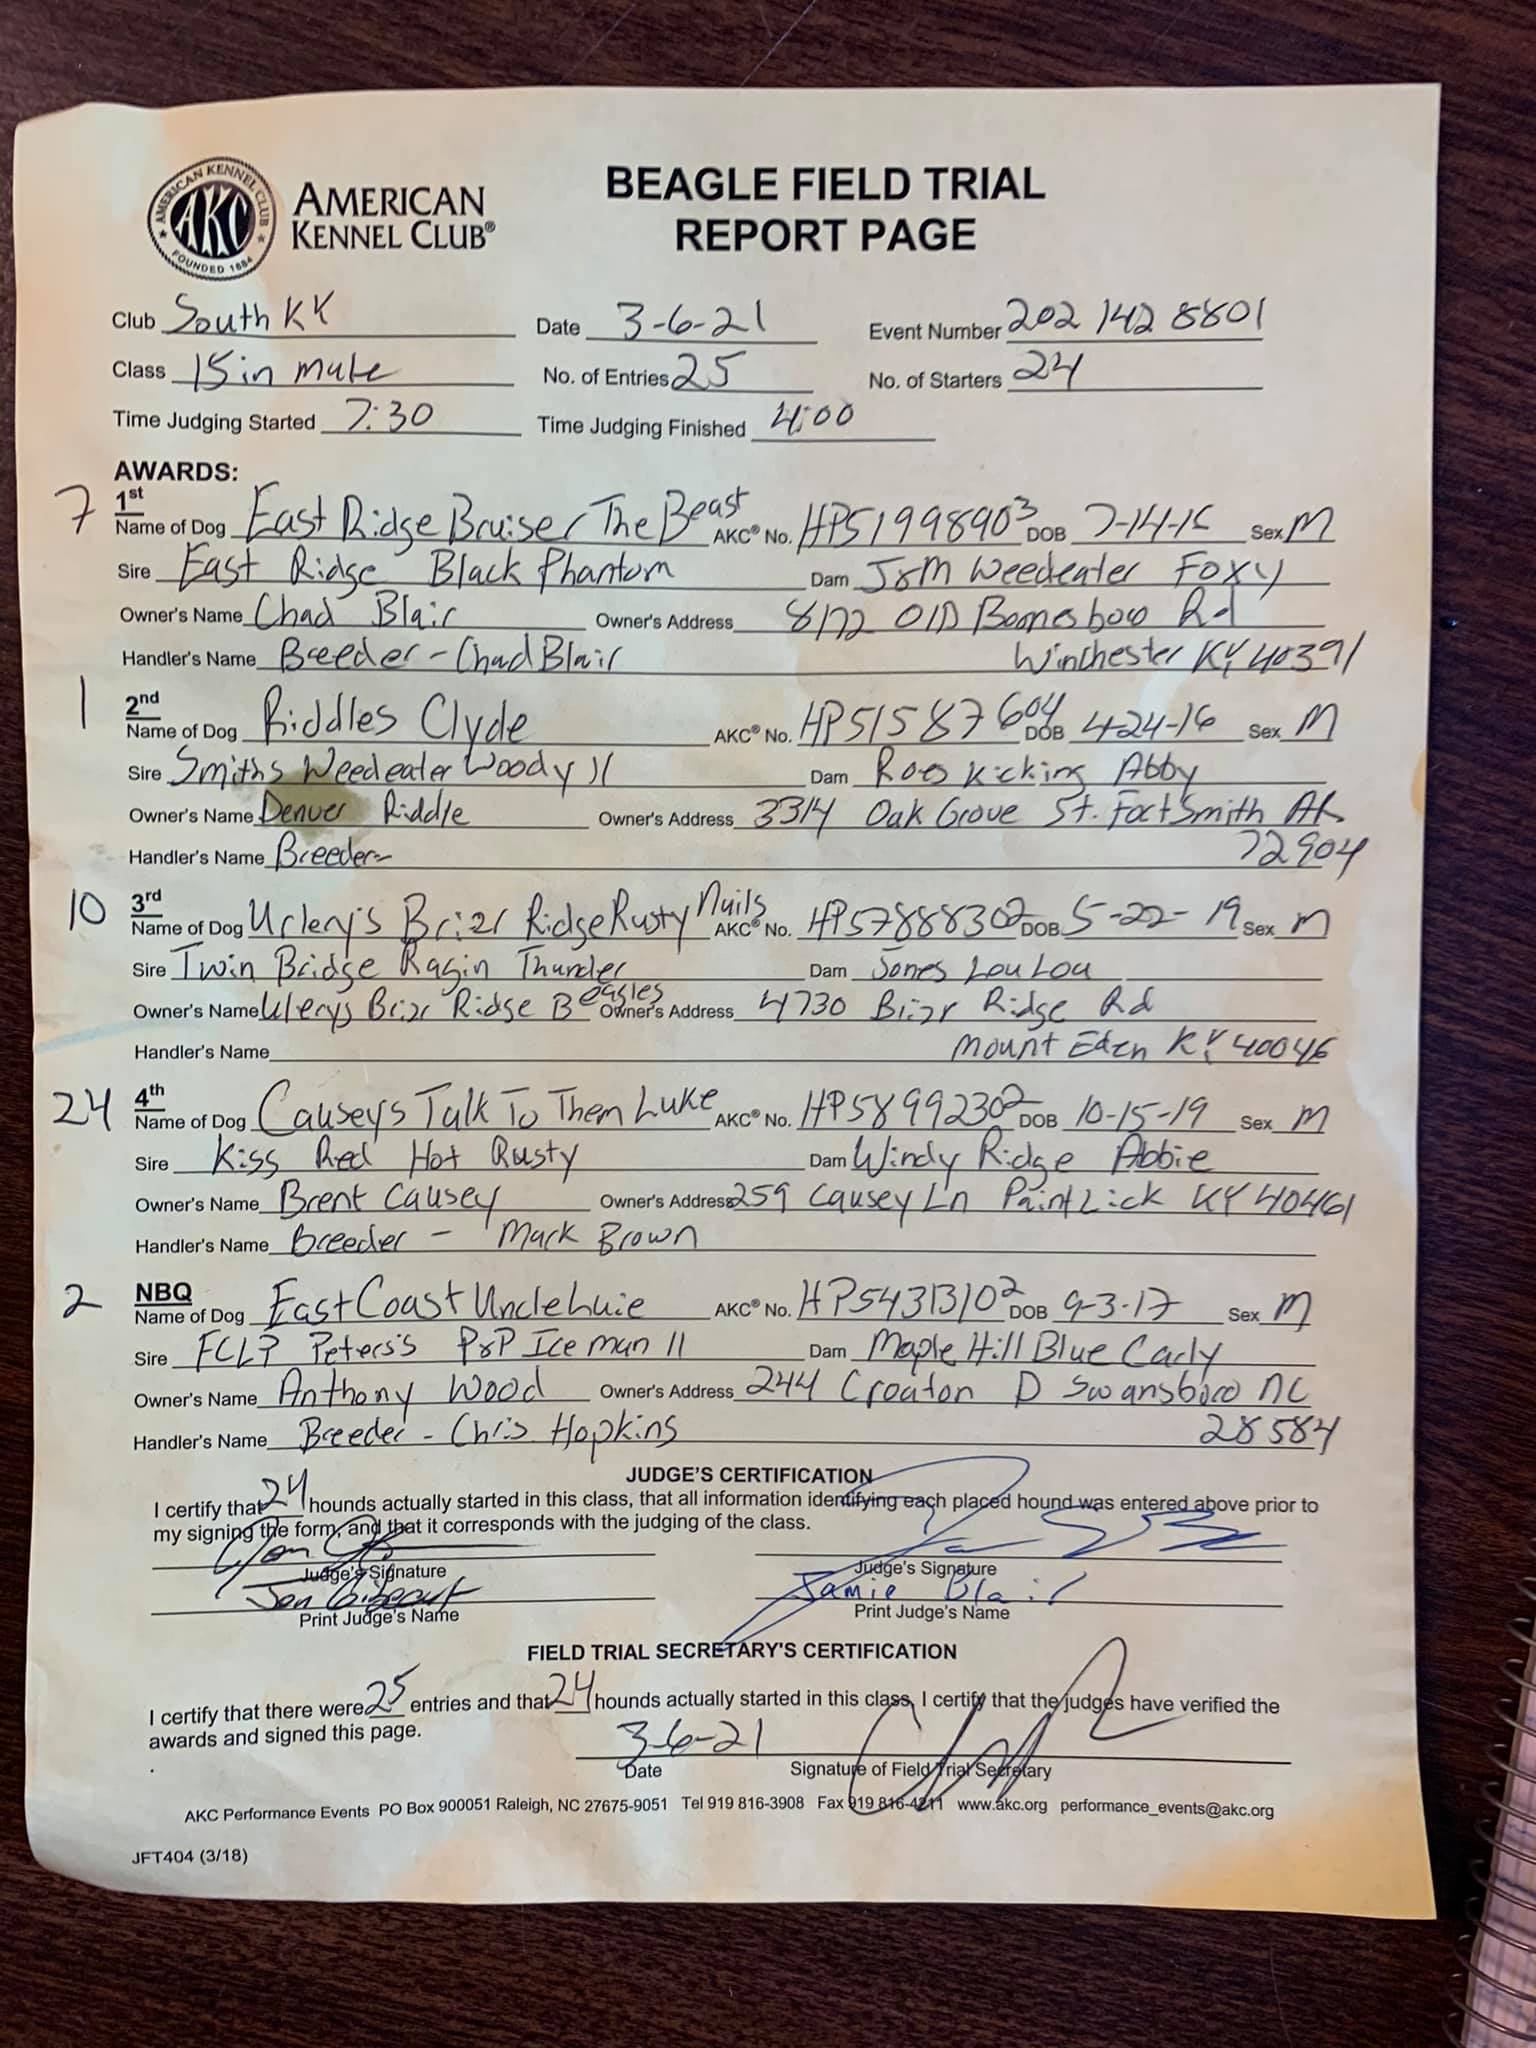 AMERICAN KENNEL CLUB
AKC
FOUNDED 1884
AMERICAN
KENNEL CLUB®
BEAGLE FIELD TRIAL
REPORT PAGE
Club South KY Date 3-6-21 Event Number 202 142 8801
Class 15 in male No. of Entries 25 No. of Starters 24
Time Judging Started 7:30 Time Judging Finished 4:00
AWARDS:
7 1st
Name of Dog East Ridge Bruiser The Beast AKC® No. HP51998903 DOB 7-14-15 Sex M
Sire East Ridge Black Phantom Dam J&M Weedeater Foxy
Owner's Name Chad Blair Owner's Address 8172 Old Boonesboro Rd
Handler's Name Breeder - Chad Blair Winchester KY 40391
1 2nd
Name of Dog Riddles Clyde AKC® No. HP51587604 DOB 4-24-16 Sex M
Sire Smiths Weedeater Woody II Dam Kicking Abby
Owner's Name Denver Riddle Owner's Address 3314 Oak Grove St. Fort Smith AR
Handler's Name Breeder- 72904
10 3rd
Name of Dog Urlery's Briar Ridge Rusty Nails AKC® No. HP57888302 DOB 5-22-19 Sex M
Sire Twin Bridge Ragin Thunder Dam Jones Lou Lou
Owner's Name Ulerys Briar Ridge Beagles Owner's Address 4730 Briar Ridge Rd
Handler's Name Mount Eden KY 40046
24 4th
Name of Dog Causey's Talk To Them Luke AKC® No. HP58992302 DOB 10-15-19 Sex M
Sire Kiss Red Hot Rusty Dam Windy Ridge Abbie
Owner's Name Brent Causey Owner's Address 259 Causey Ln Paint Lick KY 40461
Handler's Name Breeder - Mark Brown
2 NBQ
Name of Dog East Coast Uncle Luie AKC® No. HP54313102 DOB 9-3-17 Sex M
Sire FCLP Peters's P&P Iceman II Dam Maple Hill Blue Carly
Owner's Name Anthony Wood Owner's Address 244 Croaton D Swansboro NC
Handler's Name Breeder - Chris Hopkins 28584
JUDGE'S CERTIFICATION
I certify that 24 hounds actually started in this class, that all information identifying each placed hound was entered above prior to
my signing the form, and that it corresponds with the judging of the class.
Judge's Signature Judge's Signature
Jon Jamie Blair
Print Judge's Name Print Judge's Name
FIELD TRIAL SECRETARY'S CERTIFICATION
I certify that there were 25 entries and that 24 hounds actually started in this class, I certify that the judges have verified the
awards and signed this page.
3-6-21
Date Signature of Field Trial Secretary
AKC Performance Events PO Box 900051 Raleigh, NC 27675-9051 Tel 919 816-3908 Fax 919 816-4211 www.akc.org performance_events@akc.org
JFT404 (3/18)